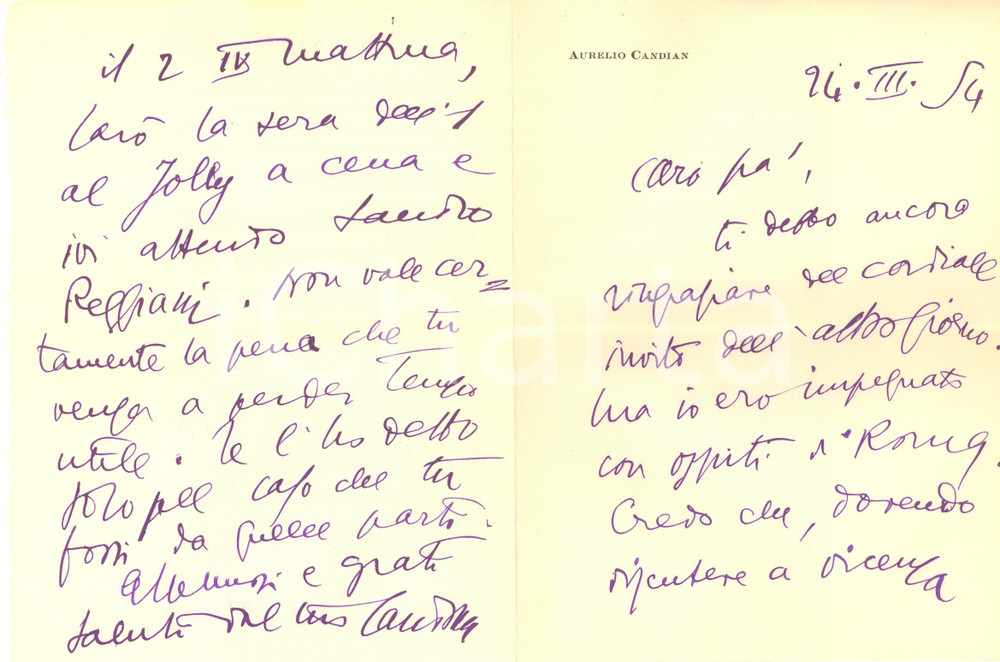 AURELIO CANDIAN
24.III.54
Caro pa',
ti debbo ancora
ringraziare del cordiale
invito dell'altro giorno.
Ma io ero impegnato
con ospiti di Roma.
Credo che, dovendo
discutere a Vicenza
il 2 IV mattina,
sarò la sera dell'1
al Jolly a cena e
ivi attendo Sandro
Reggiani. Non vale cer-
tamente la pena che tu
venga a perder tempo
utile. Te l'ho detto
solo pel caso che tu
fossi da quelle parti.
Affettuosi e grati
saluti dal tuo Candian
iCharta